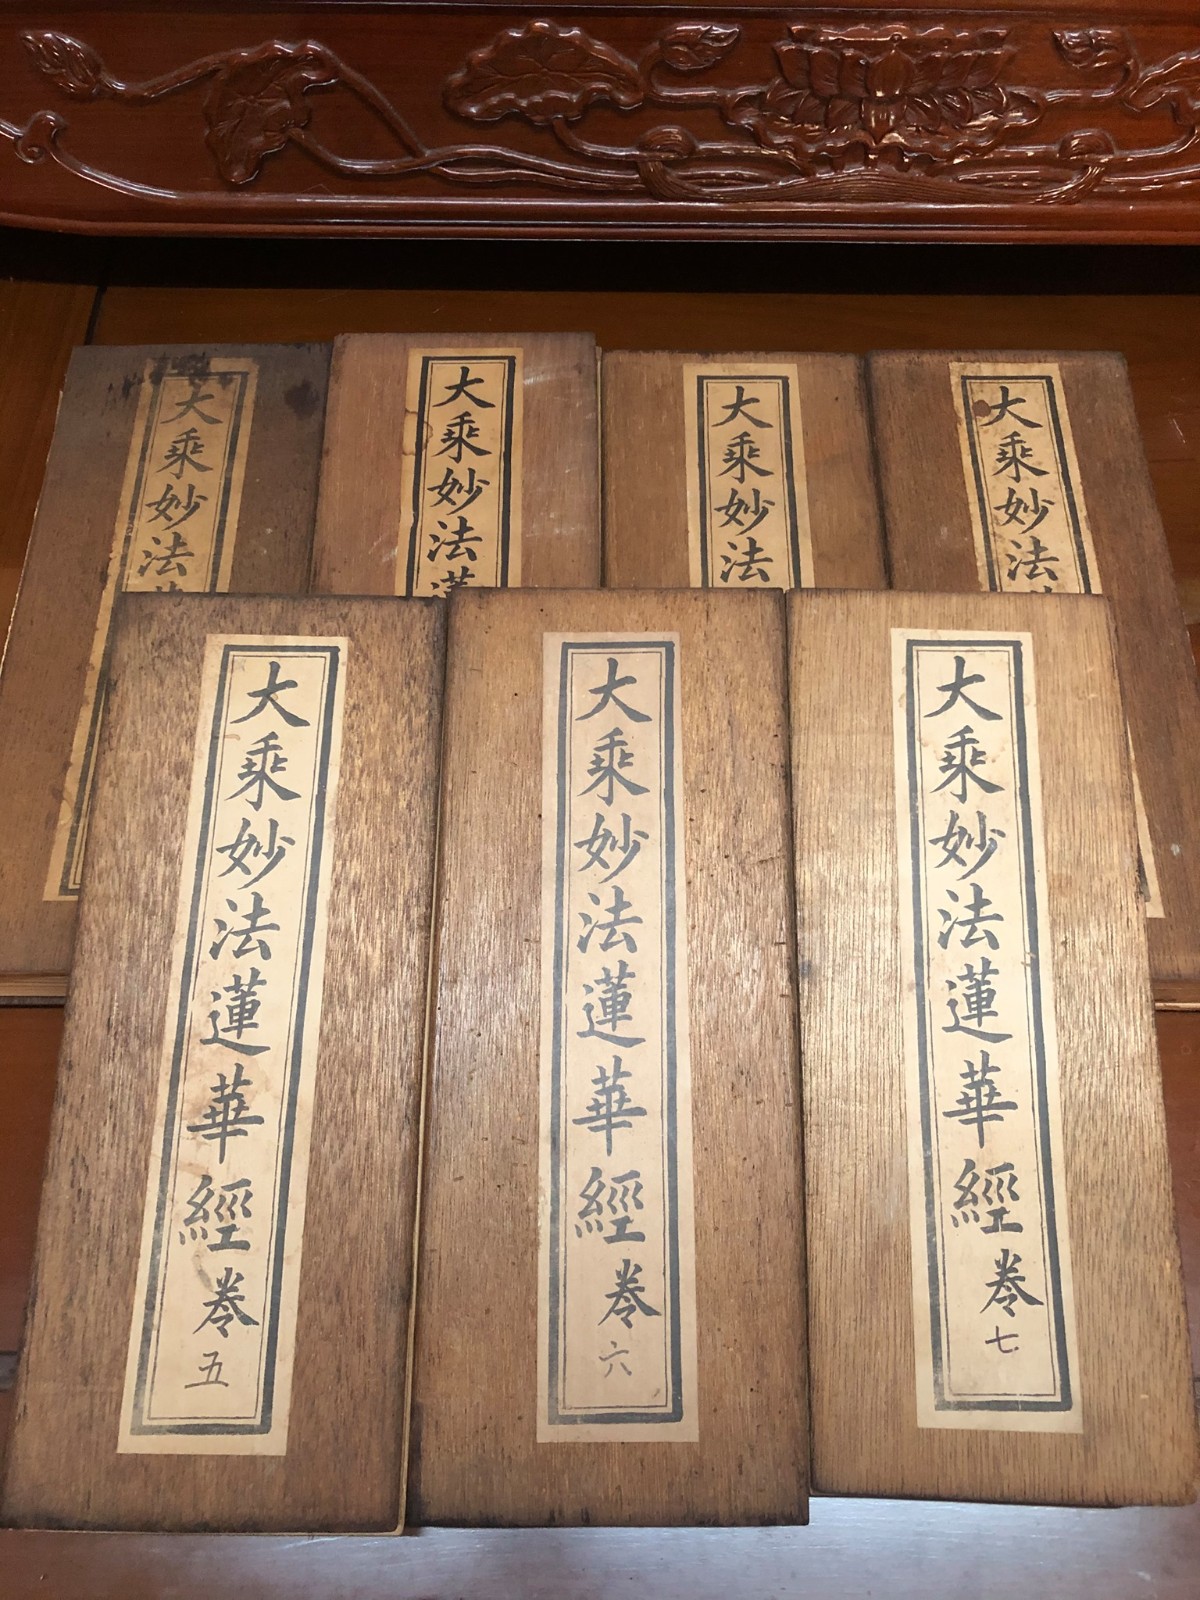 大乘妙法
大乘妙法蓮
大乘妙法
大乘妙法
大乘妙法蓮華經卷五
大乘妙法蓮華經卷六
大乘妙法蓮華經卷七